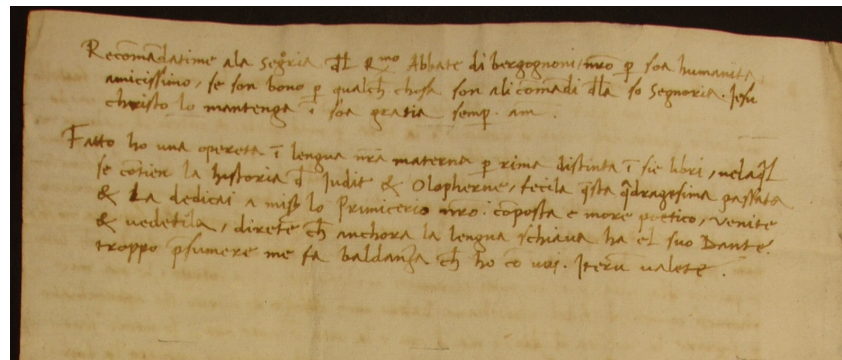 Recom̃andatime ala Segr̃ia d̃l R.mo Abbate di bergognoni / nr̃o ꝑ soa humanita
amicissimo / se son bono ꝑ qualch̃ chosa son ali com̃adi d̃la so Segnoria. Jesu
christo lo mantenga ĩ soa gratia semp̃. am.
Fatto ho una opereta ĩ lengua nr̃a materna ꝑ rima distinta ĩ sie libri / nela q̃l
se cõtien la historia d̃ Judit & Olopherne / fecila q̃sta q̃dragesima passata
& La dedicai a mis̃ lo Primicerio nr̃o. cõposta e more poetico / venite
& vedetila / direte ch̃ anchora la lengua schiava ha el suo Dante.
troppo p̃sumere me fa baldanza ch̃ ho cõ voi. Iterũ valete.